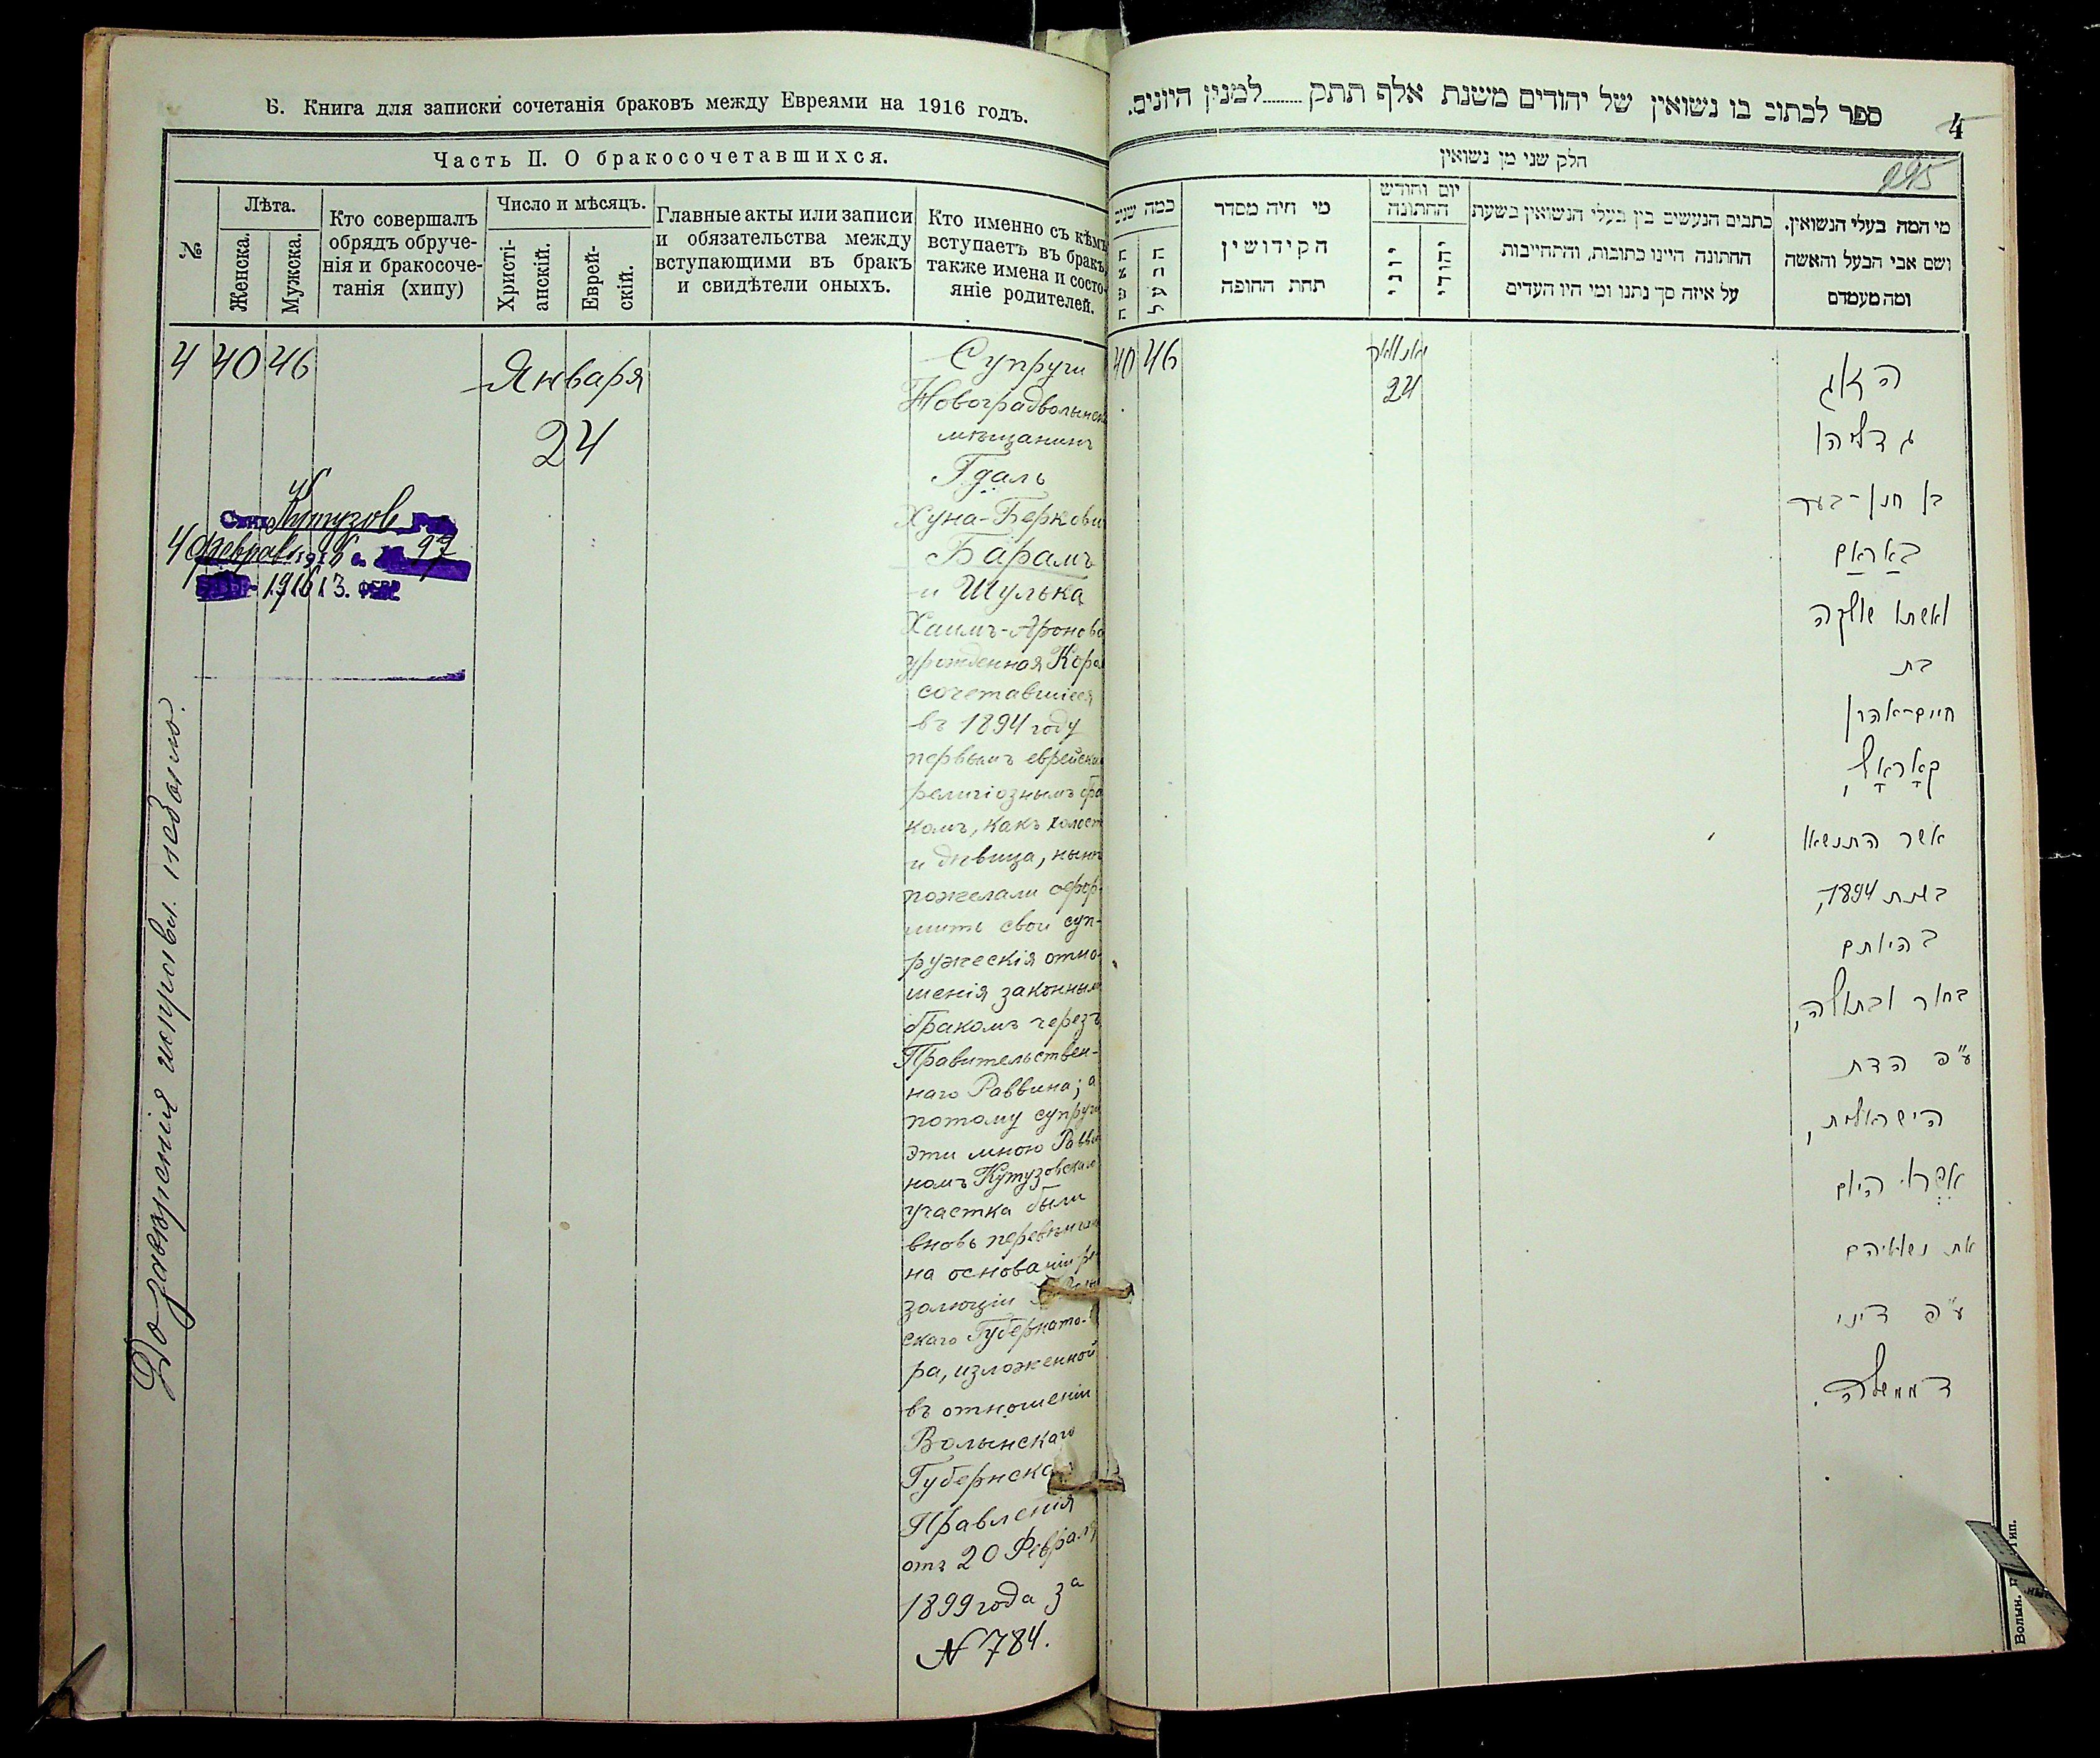 Б. Книга для записки сочетанія браковъ между Евреями на 1916 годъ.
Часть II. О бракосочетавшихся.
№
Лѣта.
Женска.
Мужска.
Кто совершалъ
обрядъ обруче-
нія и бракосоче-
танія (хипу)
Число и мѣсяцъ.
Христі-
анскій.
Еврей-
скій.
Главные акты или записи
и обязательства между
вступающими въ бракъ
и свидѣтели оныхъ.
Кто именно съ кѣмъ
вступаетъ въ бракъ,
также имена и состо-
яніе родителей.
4 40 46
Января
24
Супруги
Новоградволынск
мѣщанинъ
Гдаль
Хуна-Беркови
Барамъ
и Шулька
Хаимъ-Аронова
урожденная Кора
сочетавшіеся
въ 1894 году
первымъ еврейски
религіознымъ бра
комъ, какъ холост
и дѣвица, нынѣ
пожелали офор-
мить свои суп-
ружескія отно-
шенія законным
бракомъ черезъ
Правительствен-
наго Раввина; а
потому супруги
эти мною Равви
номъ Кутузовскаго
участка были
вновь перевѣнчаны
на основаніи ре
золюціи
скаго Губернато-
ра, изложенной
въ отношеніи
Волынскаго
Губернска
Правленія
отъ 20 Февраля
1899 года за
N 784.
Кутузов
4 феврал 1916 г. 97
1916 13. ФЕВР
До завѣренія исправл. небыло.
ספר לכתוב בו נשואין של יהודים משנת אלף תתק למנין היונים.
4
195
חלק שני מן נשואין
כמה שנים
האשה
הבעל
מי היה מסדר
הקידושין
תחת החופה
יום וחודש
החתונה
יוני
יהודי
כתבים הנעשים בין בעלי הנשואין בשעת
החתונה היינו כתובות, והתחייבות
על איזה סך נתנו ומי היו העדים
מי המה בעלי הנשואין.
ושם אבי הבעל והאשה
ומה מעמדם
40 46
יאנואר
24
הזוג
גדליהו
בן חנן-בער
באראם
ואשתו שולקה
בת
חיים-אהרן
קאראל,
אשר התנשאו
בשנת 1894,
בהיותם
בחור ובתולה,
ע"פ הדת
הישראלית,
אשרו היום
את נשואיהם
ע"פ דיני
דממשלה.
Волын.